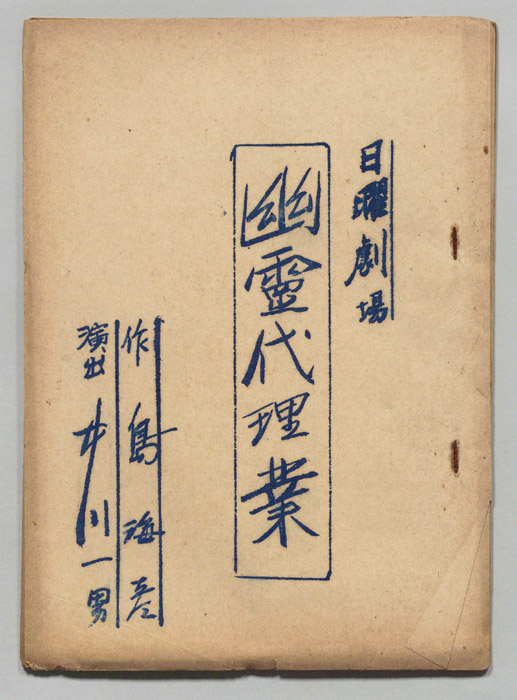 日曜劇場
幽霊代理業
作 島海
演出 井川一男